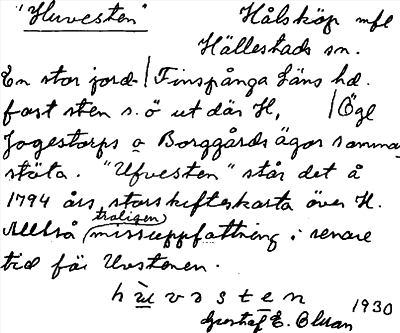 "Huvesten" Hålsköp mfl
Hällestads sn.
En stor jord- | Finspånga läns hd.
fast sten s.ö ut där H, | Ögl
Jogestorps o Borggårds ägor samman-
stöta. "Ufvesten" står det å
1794 års storskifteskarta över H.
Alltså (troligen) missuppfattning i senare
tid för Uvstenen.
h u v ə s t e n
Gustaf E. Olsson 1930